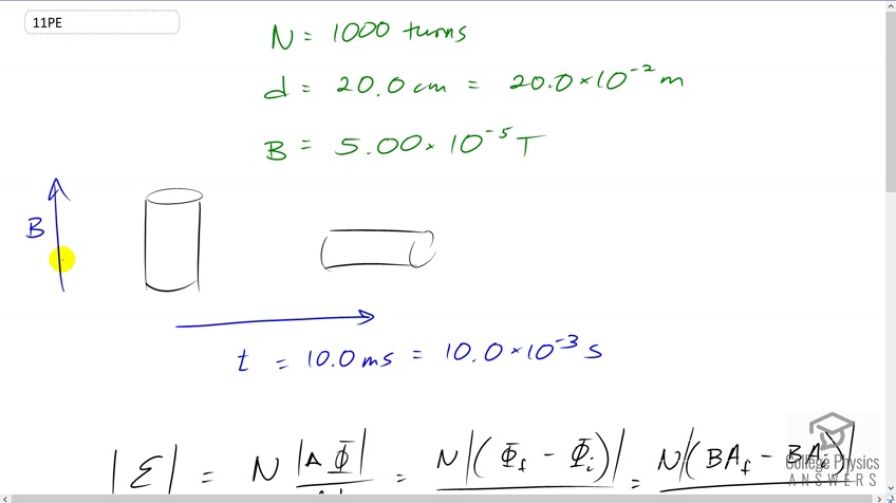 11PE
N = 1000 turns
d = 20.0 cm = 20.0 × 10⁻² m
B = 5.00 × 10⁻⁵ T
B
t = 10.0 ms = 10.0 × 10⁻³ s
|ℰ| = N |Δ Φ| = N |(Φf - Φi)| = N |(BAf - BAi)|
College Physics
ANSWERS